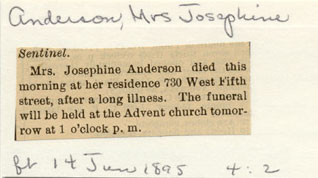 Anderson, Mrs Josephine
Sentinel.
Mrs. Josephine Anderson died this
morning at her residence 730 West Fifth
street, after a long illness. The funeral
will be held at the Advent church tomor-
row at 1 o'clock p. m.
14 Jun 1895 4:2